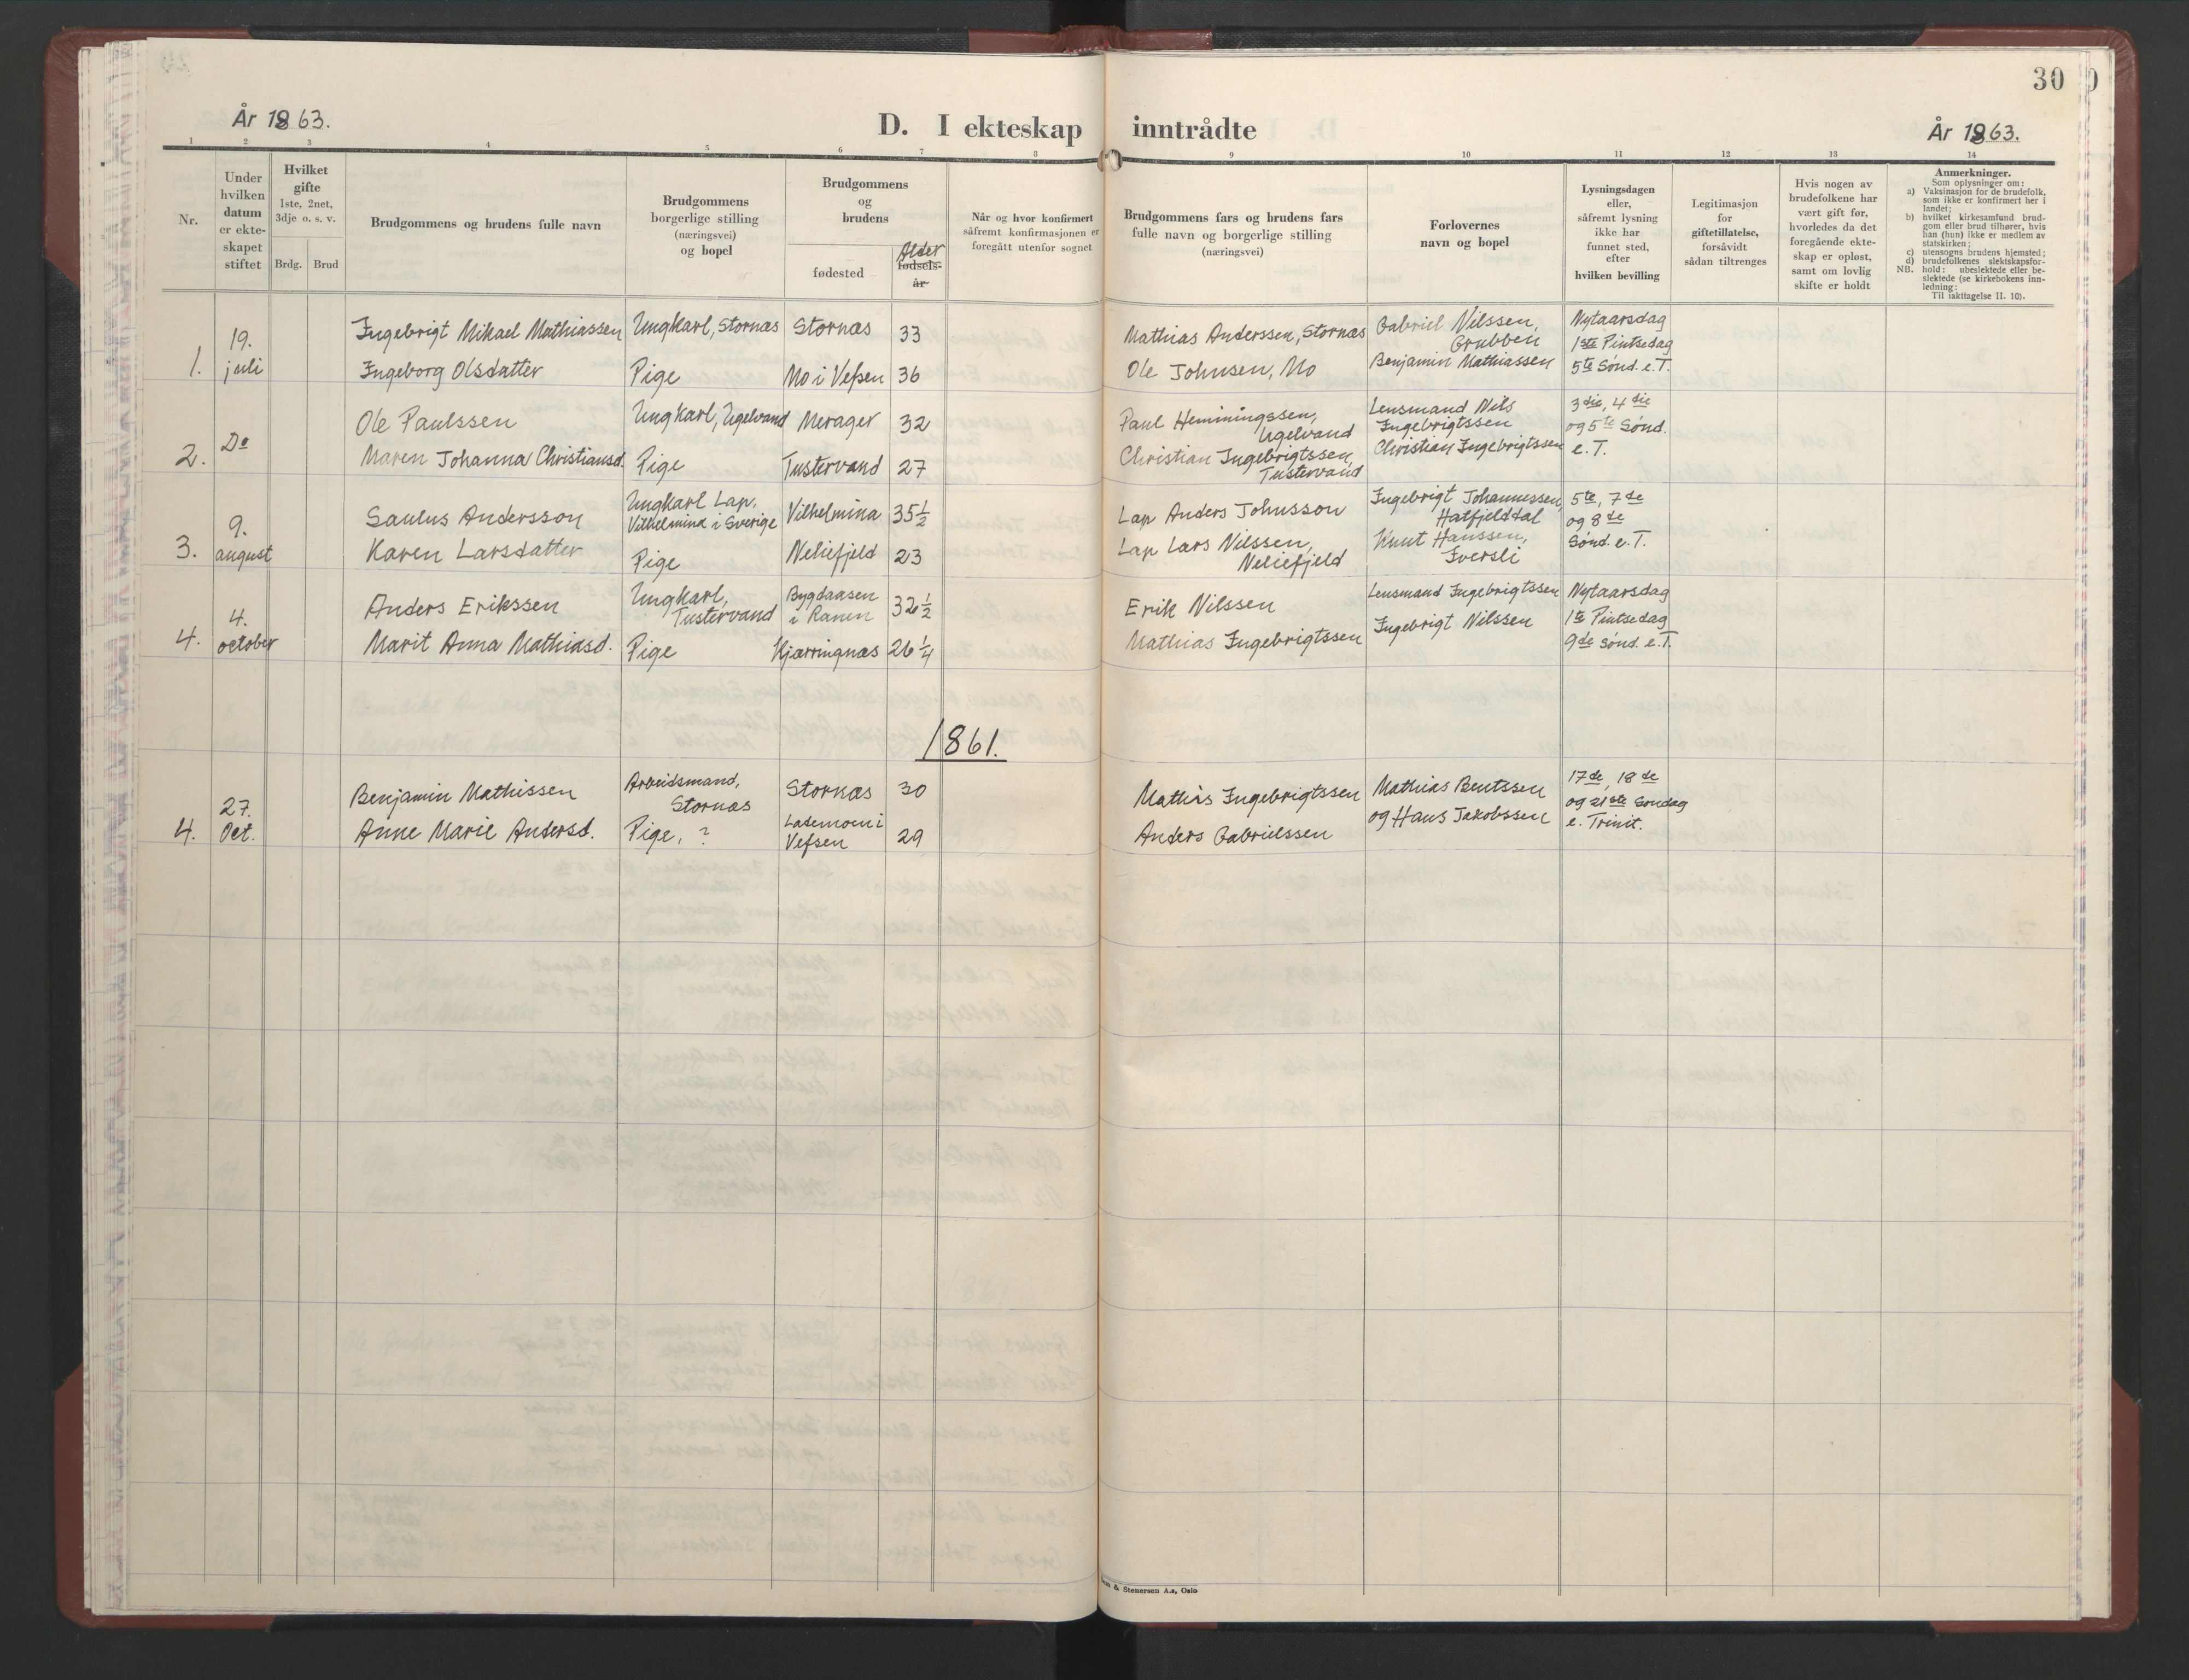 30
År 1863.
D. I ekteskap inntrådte
År 1863.
1 2 3 4 5 6 7 8 9 10 11 12 13 14
Nr.
Under
hvilken
datum
er ekte-
skapet
stiftet
Hvilket
gifte
1ste, 2net,
3dje o. s. v.
Brdg. Brud
Brudgommens og brudens fulle navn
Brudgommens
borgerlige stilling
(næringsvei)
og bopel
Brudgommens
og
brudens
fødested
Alder
fødsels-
år
Når og hvor konfirmert
såfremt konfirmasjonen er
foregått utenfor sognet
Brudgommens fars og brudens fars
fulle navn og borgerlige stilling
(næringsvei)
Forlovernes
navn og bopel
Lysningsdagen
eller,
såfremt lysning
ikke har
funnet sted,
efter
hvilken bevilling
Legitimasjon
for
giftetillatelse,
forsåvidt
sådan tiltrenges
Hvis nogen av
brudefolkene har
vært gift før,
hvorledes da det
foregående ekte-
skap er opløst,
samt om lovlig
skifte er holdt
Anmerkninger.
Som oplysninger om:
a) Vaksinasjon for de brudefolk,
som ikke er konfirmert her i
landet;
b) hvilket kirkesamfund brud-
gom eller brud tilhører, hvis
han (hun) ikke er medlem av
statskirken;
c) utensogns brudens hjemsted;
d) brudefolkenes slektskapsfor-
hold: ubeslektede eller be-
NB. slektede (se kirkebokens inn-
ledning:
Til iakttagelse II. 10).
1.
19.
juli
Ingebrigt Mikael Mathiassen
Ingeborg Olsdatter
Ungkarl, Stornæs
Pige
Stornæs
Mo i Vefsen
33
36
Mathias Anderssen, Stornæs
Ole Johnsen, Mo
Gabriel Nilssen,
Grubben
Benjamin Mathiassen
Nytaarsdag
1ste Pintsedag
5te Sønd. e. T.
2.
Do
Ole Paulssen
Maren Johanna Christiansd.
Ungkarl, Ugelvand
Pige
Merager
Tustervand
32
27
Paul Hemmingssen,
Ugelvand
Christian Ingebrigtssen,
Tustervand
Lensmand Nils
Ingebrigtssen
Christian Ingebrigtssen
3die, 4die
og 5te Sønd.
e. T.
3.
9.
august
Saulus Andersson
Karen Larsdatter
Ungkarl Lap,
Vilhelmina i Sverige
Pige
Vilhelmina
Neliefjeld
35 1/2
23
Lap Anders Johnsson
Lap Lars Nilssen,
Neliefjeld
Ingebrigt Johannessen,
Hatfjelddal
Knut Hanssen,
Iversli
5te, 7de
og 8de
Sønd. e. T.
4.
4.
october
Anders Erikssen
Marit Anna Mathiasd.
Ungkarl,
Tustervand
Pige
Bygdaasen
i Ranen
Kjærringnæs
32 1/2
26 1/4
Erik Nilssen
Mathias Ingebrigtssen
Lensmand Ingebrigtssen
Ingebrigt Nilssen
Nytaarsdag
1te Pintsedag
9de Sønd. e. T.
1861.
4.
27.
Oct.
Benjamin Mathissen
Anne Marie Andersd.
Arbeidsmand,
Stornæs
Pige, ?
Stornæs
Lademoen i
Vefsen
30
29
Mathias Ingebrigtssen
Anders Gabrielssen
Mathias Bentssen
og Hans Jakobssen
17de, 18de
og 21ste Søndag
e. Trinit.
& Stenersen A.s, Oslo